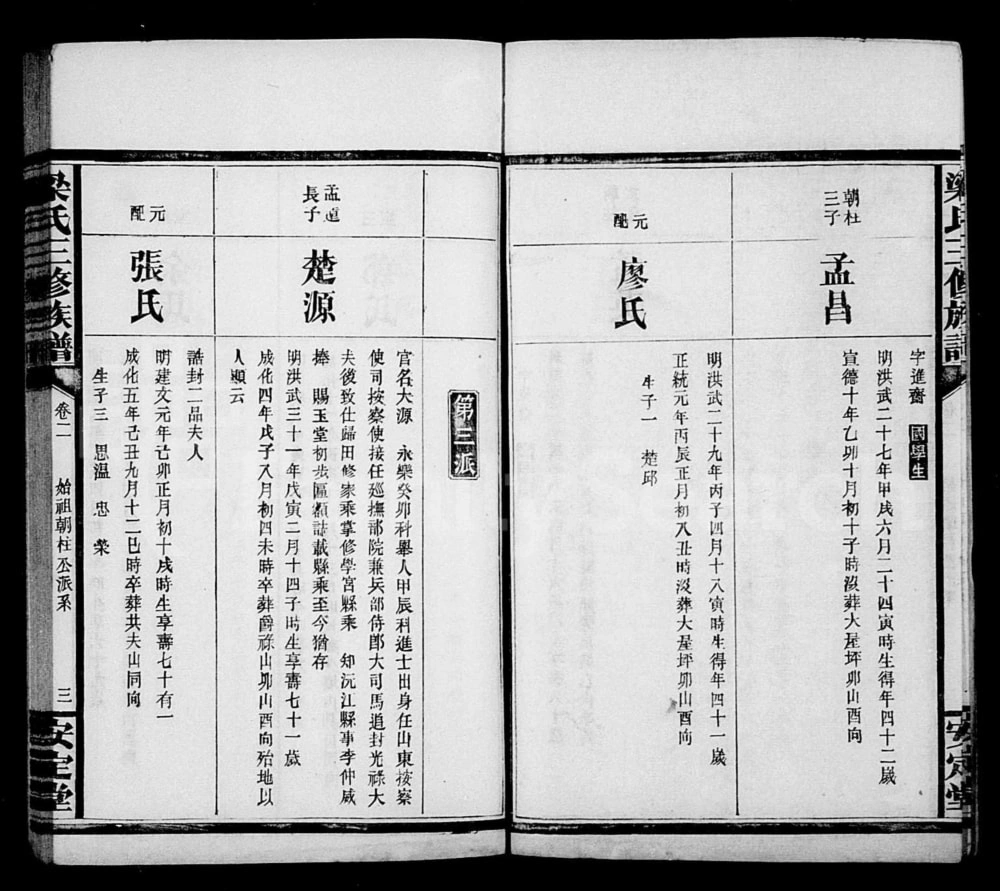 梁氏三修族譜
安定堂
朝柱三子
孟昌
字進齋 國學生
明洪武二十七年甲戌六月二十四寅時生得年四十二歲
宣德十年乙卯十月初十子時沒葬大屋坪卯山酉向
元配
廖氏
明洪武二十九年丙子四月十八寅時生得年四十一歲
正統元年丙辰正月初八丑時沒葬大屋坪卯山酉向
生子一 楚邱
第三派
孟道長子
楚源
官名大源 永樂癸卯科舉人甲辰科進士出身任山東按察
使司按察使接任巡撫部院兼兵部侍郎大司馬追封光祿大
夫後致仕歸田修家乘掌修學宮縣乘 知沅江縣事李仲威
捧 賜玉堂初步匾額誌載縣乘至今猶存
明洪武三十一年戊寅二月十四子時生享壽七十一歲
成化四年戊子八月初四未時卒葬爵祿山卯山酉向殆地以
人顯云
元配
張氏
誥封二品夫人
明建文元年己卯正月初十戌時生享壽七十有一
成化五年己丑九月十二巳時卒葬共夫山同向
生子三 思溫 忠 榮
梁氏三修族譜
卷二
始祖朝柱丞派系
三
安定堂